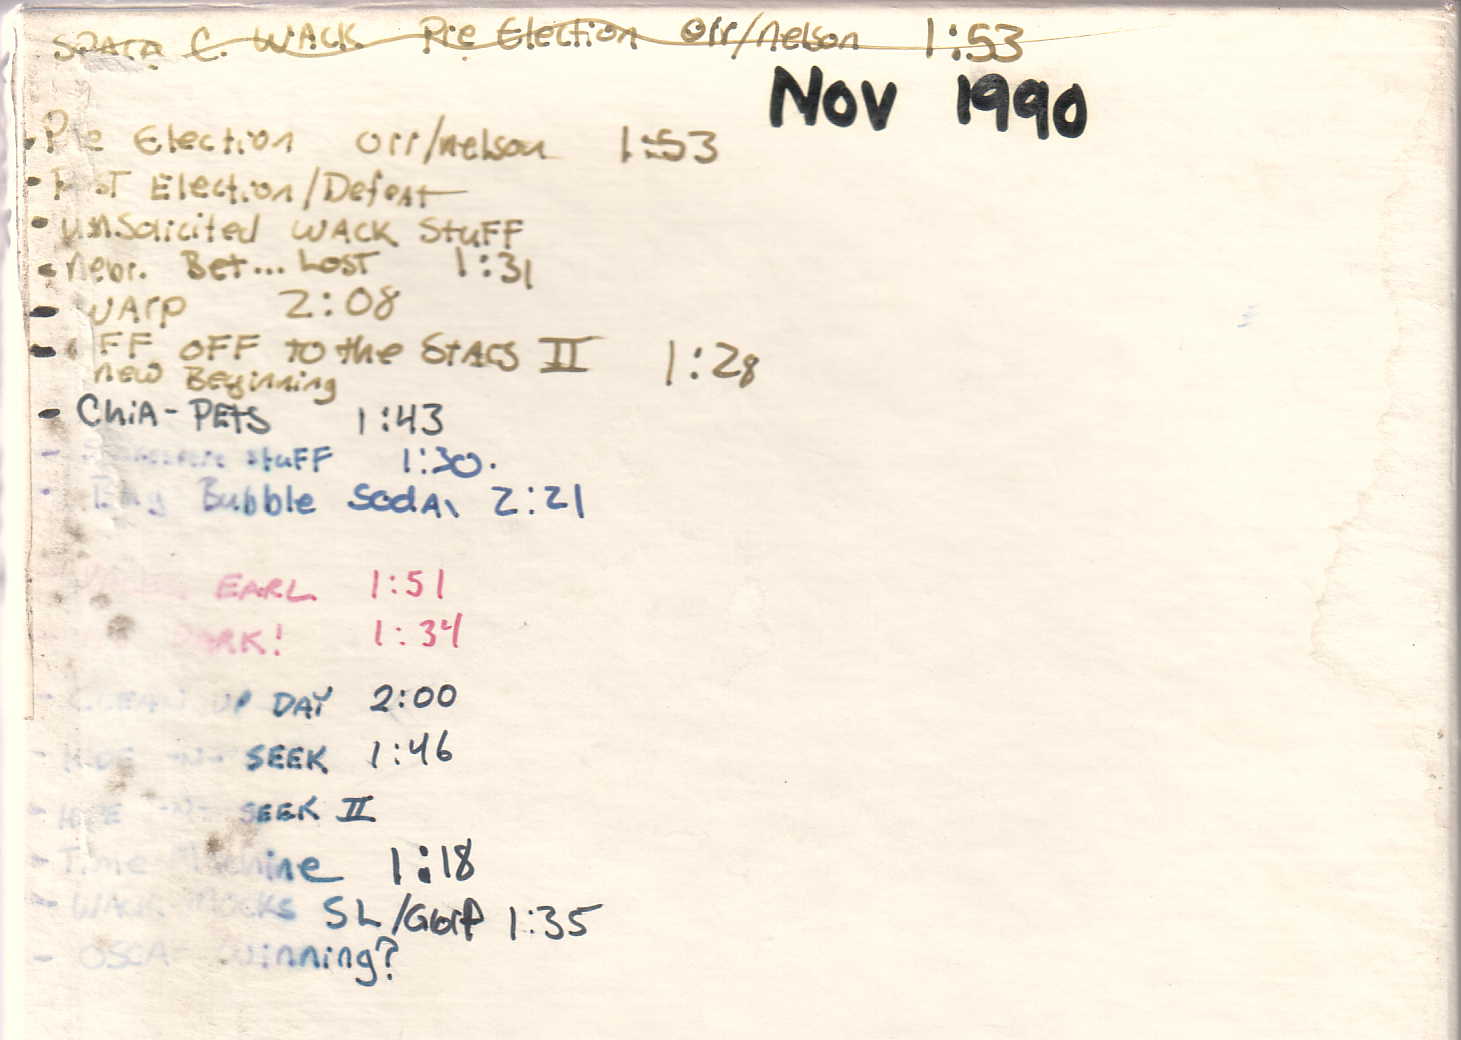 C. WACK Pre Election Orr/nelson 1:53
Nov 1990
- Pre Election Orr/nelson 1:53
- Post Election/Defeat
- UnSolicited WACK StuFF
- Nebr. Bet... LosT 1:31
- WArp 2:08
- OFF oFF to the StArs II 1:28
new Beginning
- ChiA-PETS 1:43
- StuFF 1:30.
- Tiny Bubble SodA 2:21
EARL 1:51
PARK! 1:34
- CLEAN UP DAY 2:00
- HIDE -N- SEEK 1:46
- HIDE -N- SEEK II
- Time Machine 1:18
- WACK Mocks SL/GolF 1:35
- OSCAr Winning?